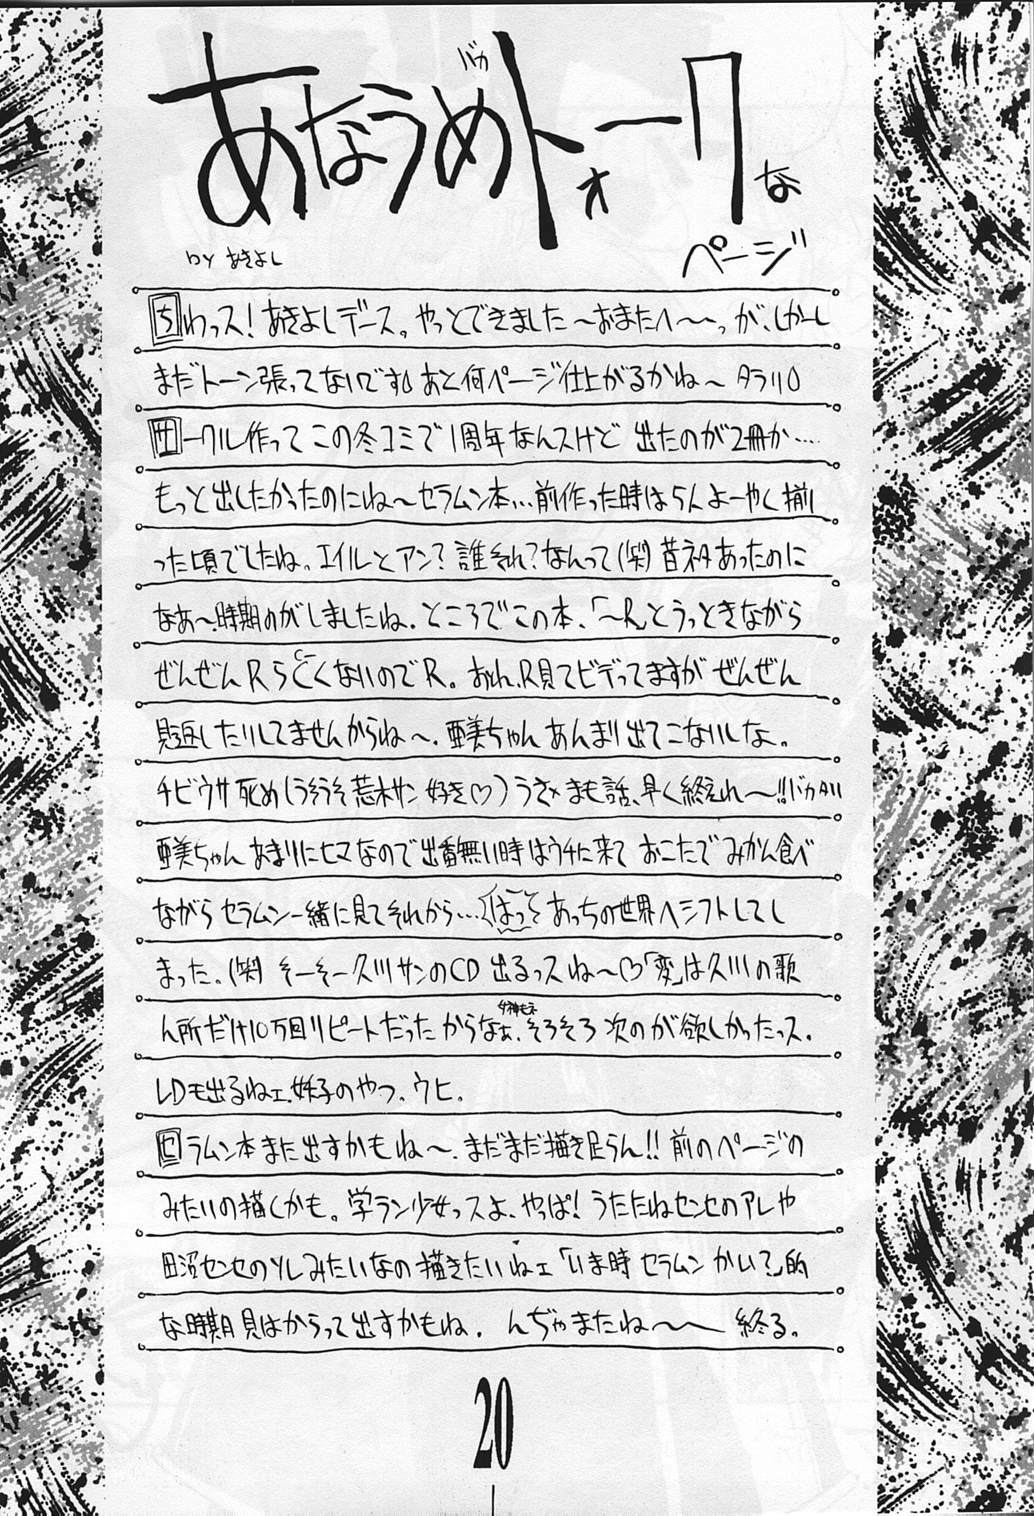 あなうめバカトォークな
ページ
by あきよし
ちわっス！あきよしデース。やっとできました〜おまたへ〜〜っ が、しかーし
まだトーン張ってないです あと何ページ仕上がるかね〜 タラリ
サークル作って この冬コミで 1周年なんスけど 出たのが2冊か‥‥
もっと出したかったのにね〜セラムン本…前作った時は5人よーやく揃
った頃でしたね。エイルとアン？誰それ？なんって（笑）昔ネタあったのに
なあ〜、時期のがしましたね、ところでこの本、「〜R」とうっときながら
ぜんぜんRらしくないのでR。おれ、R見てビデってますが ぜんぜん
見返したりしてませんからね〜、亜美ちゃん あんまり出てこないしな。
チビウサ死め（うそうそ 荒木サン 好き♡）うさ×まも話、早く終えれ〜!!バカタリ
亜美ちゃん あまりにヒマなので出番無い時はウチに来て おこたで みかん食べ
ながら セラムン一緒に見て それから…はっ あっちの世界へシフトしてし
まった。（笑） そーそー久川サンのCD 出るっスね〜♡「変」は久川の歌
ん所だけ10万回リピートだった からなぁ、そろそろ 次のが欲しかったっス。
LDも出るねェ、妖子のやつ、ウヒ。
セラムン本また出すかもね〜、まだまだ描き足らん!! 前のページの
みたいの描くかも。学ラン少女っスよ、やっぱ！うたたねセンセのアレや
田沼センセのソレみたいなの描きたいねェ「いま時 セラムン かい？」的
な時期 見はからって出すかもね。 んぢゃまたね〜〜 終る。
20